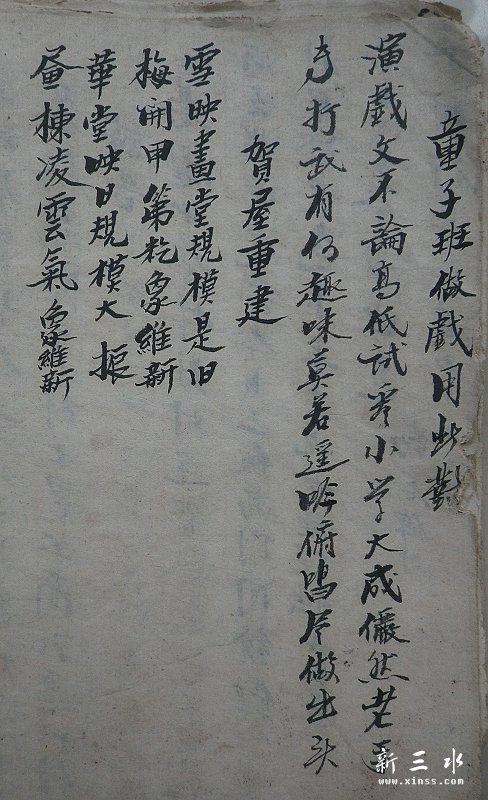 童子班做戲用此對
演戲文不論高低試看小学大成儼然老
打武有何趣味莫若遥吟俯唱尽做出
賀屋重建
雪映畫堂規模是旧
梅開甲第乾象維新
華堂映日規模大振
畫棟凌雲氣象維新
新三水
www.xinss.com